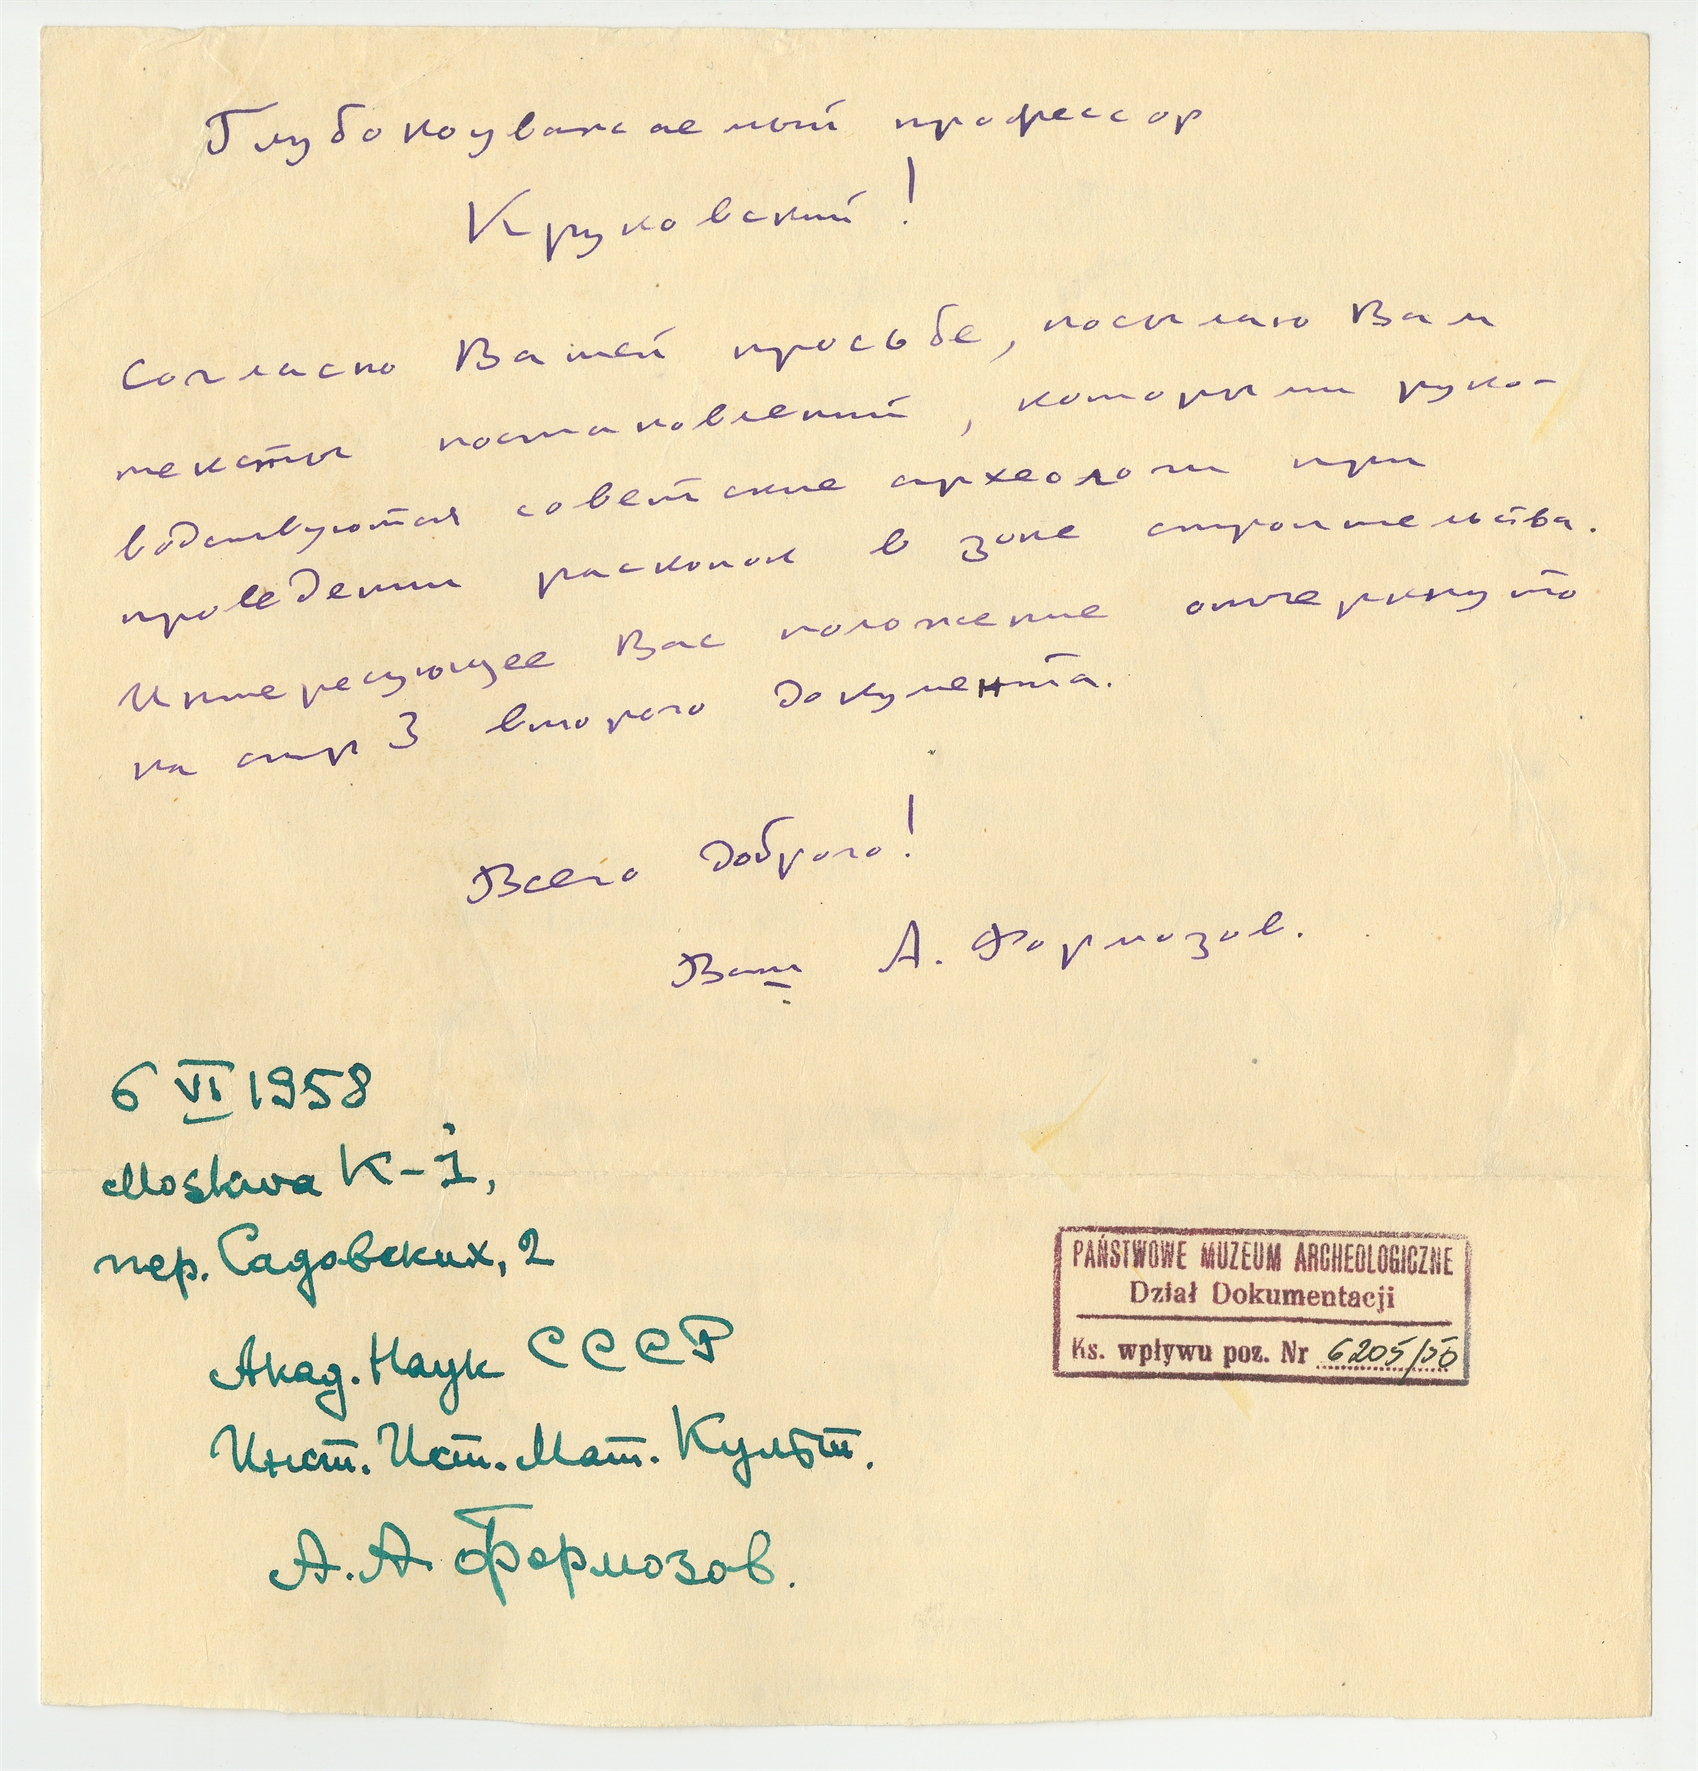 Глубокоуважаемый профессор
Круковский!
Согласно Вашей просьбе, посылаю Вам
тексты постановлений, которыми руко-
водствуются советские археологи при
проведении раскопок в зоне строительства.
Интересующее Вас положение отчеркнуто
на стр 3 второго документа.
Всего доброго!
Ваш А. Формозов.
6 VI 1958
Moskwa K-1,
пер. Садовских, 2
Акад. Наук СССР
Инст. Ист. Мат. Культ.
А. А. Формозов.
PAŃSTWOWE MUZEUM ARCHEOLOGICZNE
Dział Dokumentacji
Ks. wpływu poz. Nr 6205/50